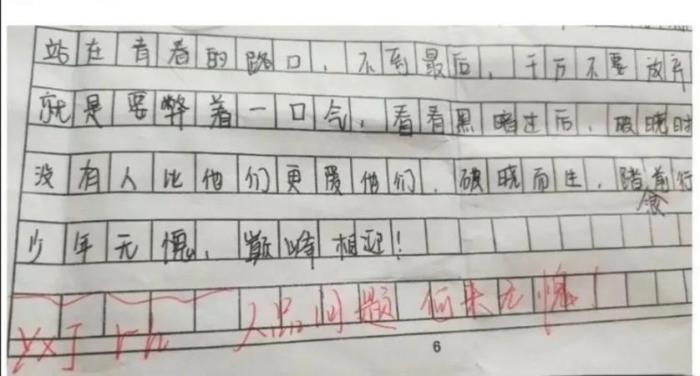 站在青春的路口，不到最后，千万不要放弃
就是要弊着一口气，看看黑暗过后，破晓时
没有人比他们更爱他们，破晓而生，踏前行
少年无愧，巅峰相迎！
yxJ rh 人品问题 何来无愧！
6